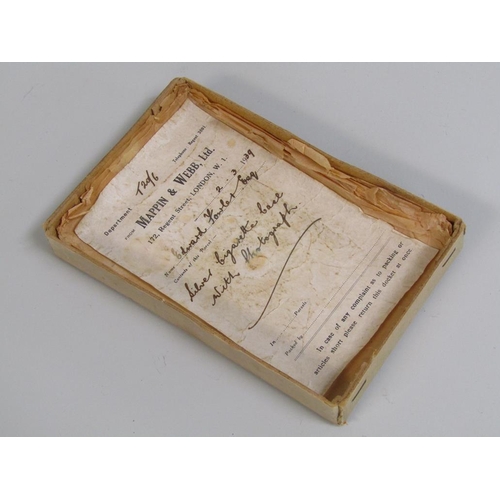 Department T20/6 Telephone: Regent
FROM MAPPIN & WEBB, Ltd.
172, Regent Street, LONDON, W. 1.
2 3 1929
Name Edward Fowler Esq
Contents of this Parcel
Silver Cigarette Case
With Photograph
In Parcels
Packed by
In case of any complaint as to packing or
articles short please return this docket at once.